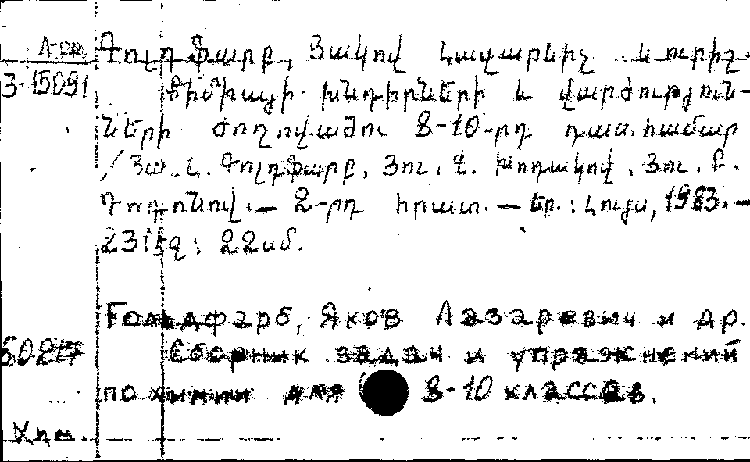 Գոլդֆարբ, Յակով Լազարևիչ և ուրիշ.
3-15091
Քիմիայի խնդիրների և վարժություն-
ների ժողովածու 8-10-րդ դաս. համար
/ Յա. Լ. Գոլդֆարբ, Յու. Վ. Խոդակով, Յու. Բ.
Դոդոնով. — 2-րդ հրատ. — Եր.: Լույս, 1983. —
231 էջ; 22 սմ.
Гольдфарб, Яков Лазаревич и др.
Сборник задач и упражнений
по химии для 8-10 классов.